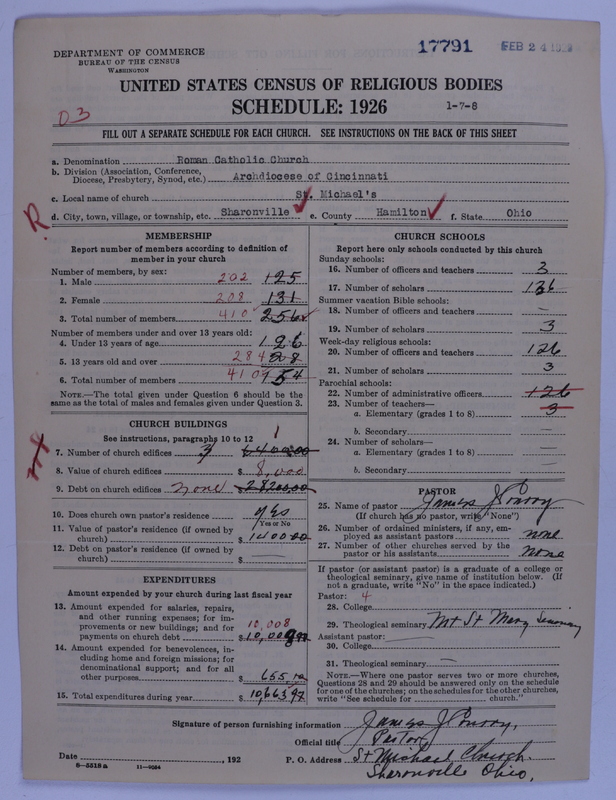 DEPARTMENT OF COMMERCE
BUREAU OF THE CENSUS
WASHINGTON
17791
FEB 24
UNITED STATES CENSUS OF RELIGIOUS BODIES
SCHEDULE: 1926
1-7-8
03
FILL OUT A SEPARATE SCHEDULE FOR EACH CHURCH. SEE INSTRUCTIONS ON THE BACK OF THIS SHEET
a. Denomination Roman Catholic Church
b. Division (Association, Conference,
Diocese, Presbytery, Synod, etc.) Archdiocese of Cincinnati
c. Local name of church St. Michael's
d. City, town, village, or township, etc. Sharonville e. County Hamilton f. State Ohio
R
MEMBERSHIP
Report number of members according to definition of
member in your church
Number of members, by sex:
1. Male 202 125
2. Female 208 131
3. Total number of members 410 256
Number of members under and over 13 years old:
4. Under 13 years of age 126
5. 13 years old and over 284
6. Total number of members 410
NOTE.—The total given under Question 6 should be
same as the total of males and females given under Question 3.
CHURCH BUILDINGS
See instructions, paragraphs 10 to 12
7. Number of church edifices 1
8. Value of church edifices $ 8,000
9. Debt on church edifices none $ 28200.00
10. Does church own pastor's residence yes
Yes or No
11. Value of pastor's residence (if owned by
church) $
12. Debt on pastor's residence (if owned by
church) $
EXPENDITURES
Amount expended by your church during last fiscal year
13. Amount expended for salaries, repairs,
and other running expenses; for im-
provements or new buildings; and for
payments on church debt 10,008
14. Amount expended for benevolences, in-
cluding home and foreign missions; for
denominational support; and for all
other purposes $ 655
15. Total expenditures during year $ 10,663.97
CHURCH SCHOOLS
Report here only schools conducted by this church
Sunday schools:
16. Number of officers and teachers 3
17. Number of scholars 126
Summer vacation Bible schools:
18. Number of officers and teachers —
19. Number of scholars 3
Week-day religious schools:
20. Number of officers and teachers 126
21. Number of scholars 3
Parochial schools:
22. Number of administrative officers 126
23. Number of teachers— 3
a. Elementary (grades 1 to 8)
b. Secondary —
24. Number of scholars—
a. Elementary (grades 1 to 8) —
b. Secondary —
PASTOR
25. Name of pastor James J Conroy
(If church has no pastor, write "None")
26. Number of ordained ministers, if any, em-
ployed as assistant pastors none
27. Number of other churches served by the
pastor or his assistants none
If pastor (or assistant pastor) is a graduate of a college or
theological seminary, give name of institution below. (If
not a graduate, write "No" in the space indicated.)
Pastor: 4
28. College
29. Theological seminary Mt St Mary Seminary
Assistant pastor:
30. College
31. Theological seminary —
NOTE.—Where one pastor serves two or more churches,
Questions 28 and 29 should be answered only on the schedule
for one of the churches; on the schedules for the other churches,
write "See schedule for church."
Signature of person furnishing information James J Conroy,
Official title Pastor
Date , 192 P. O. Address St Michael Church
Sharonville Ohio.
8—5518a 11—9064